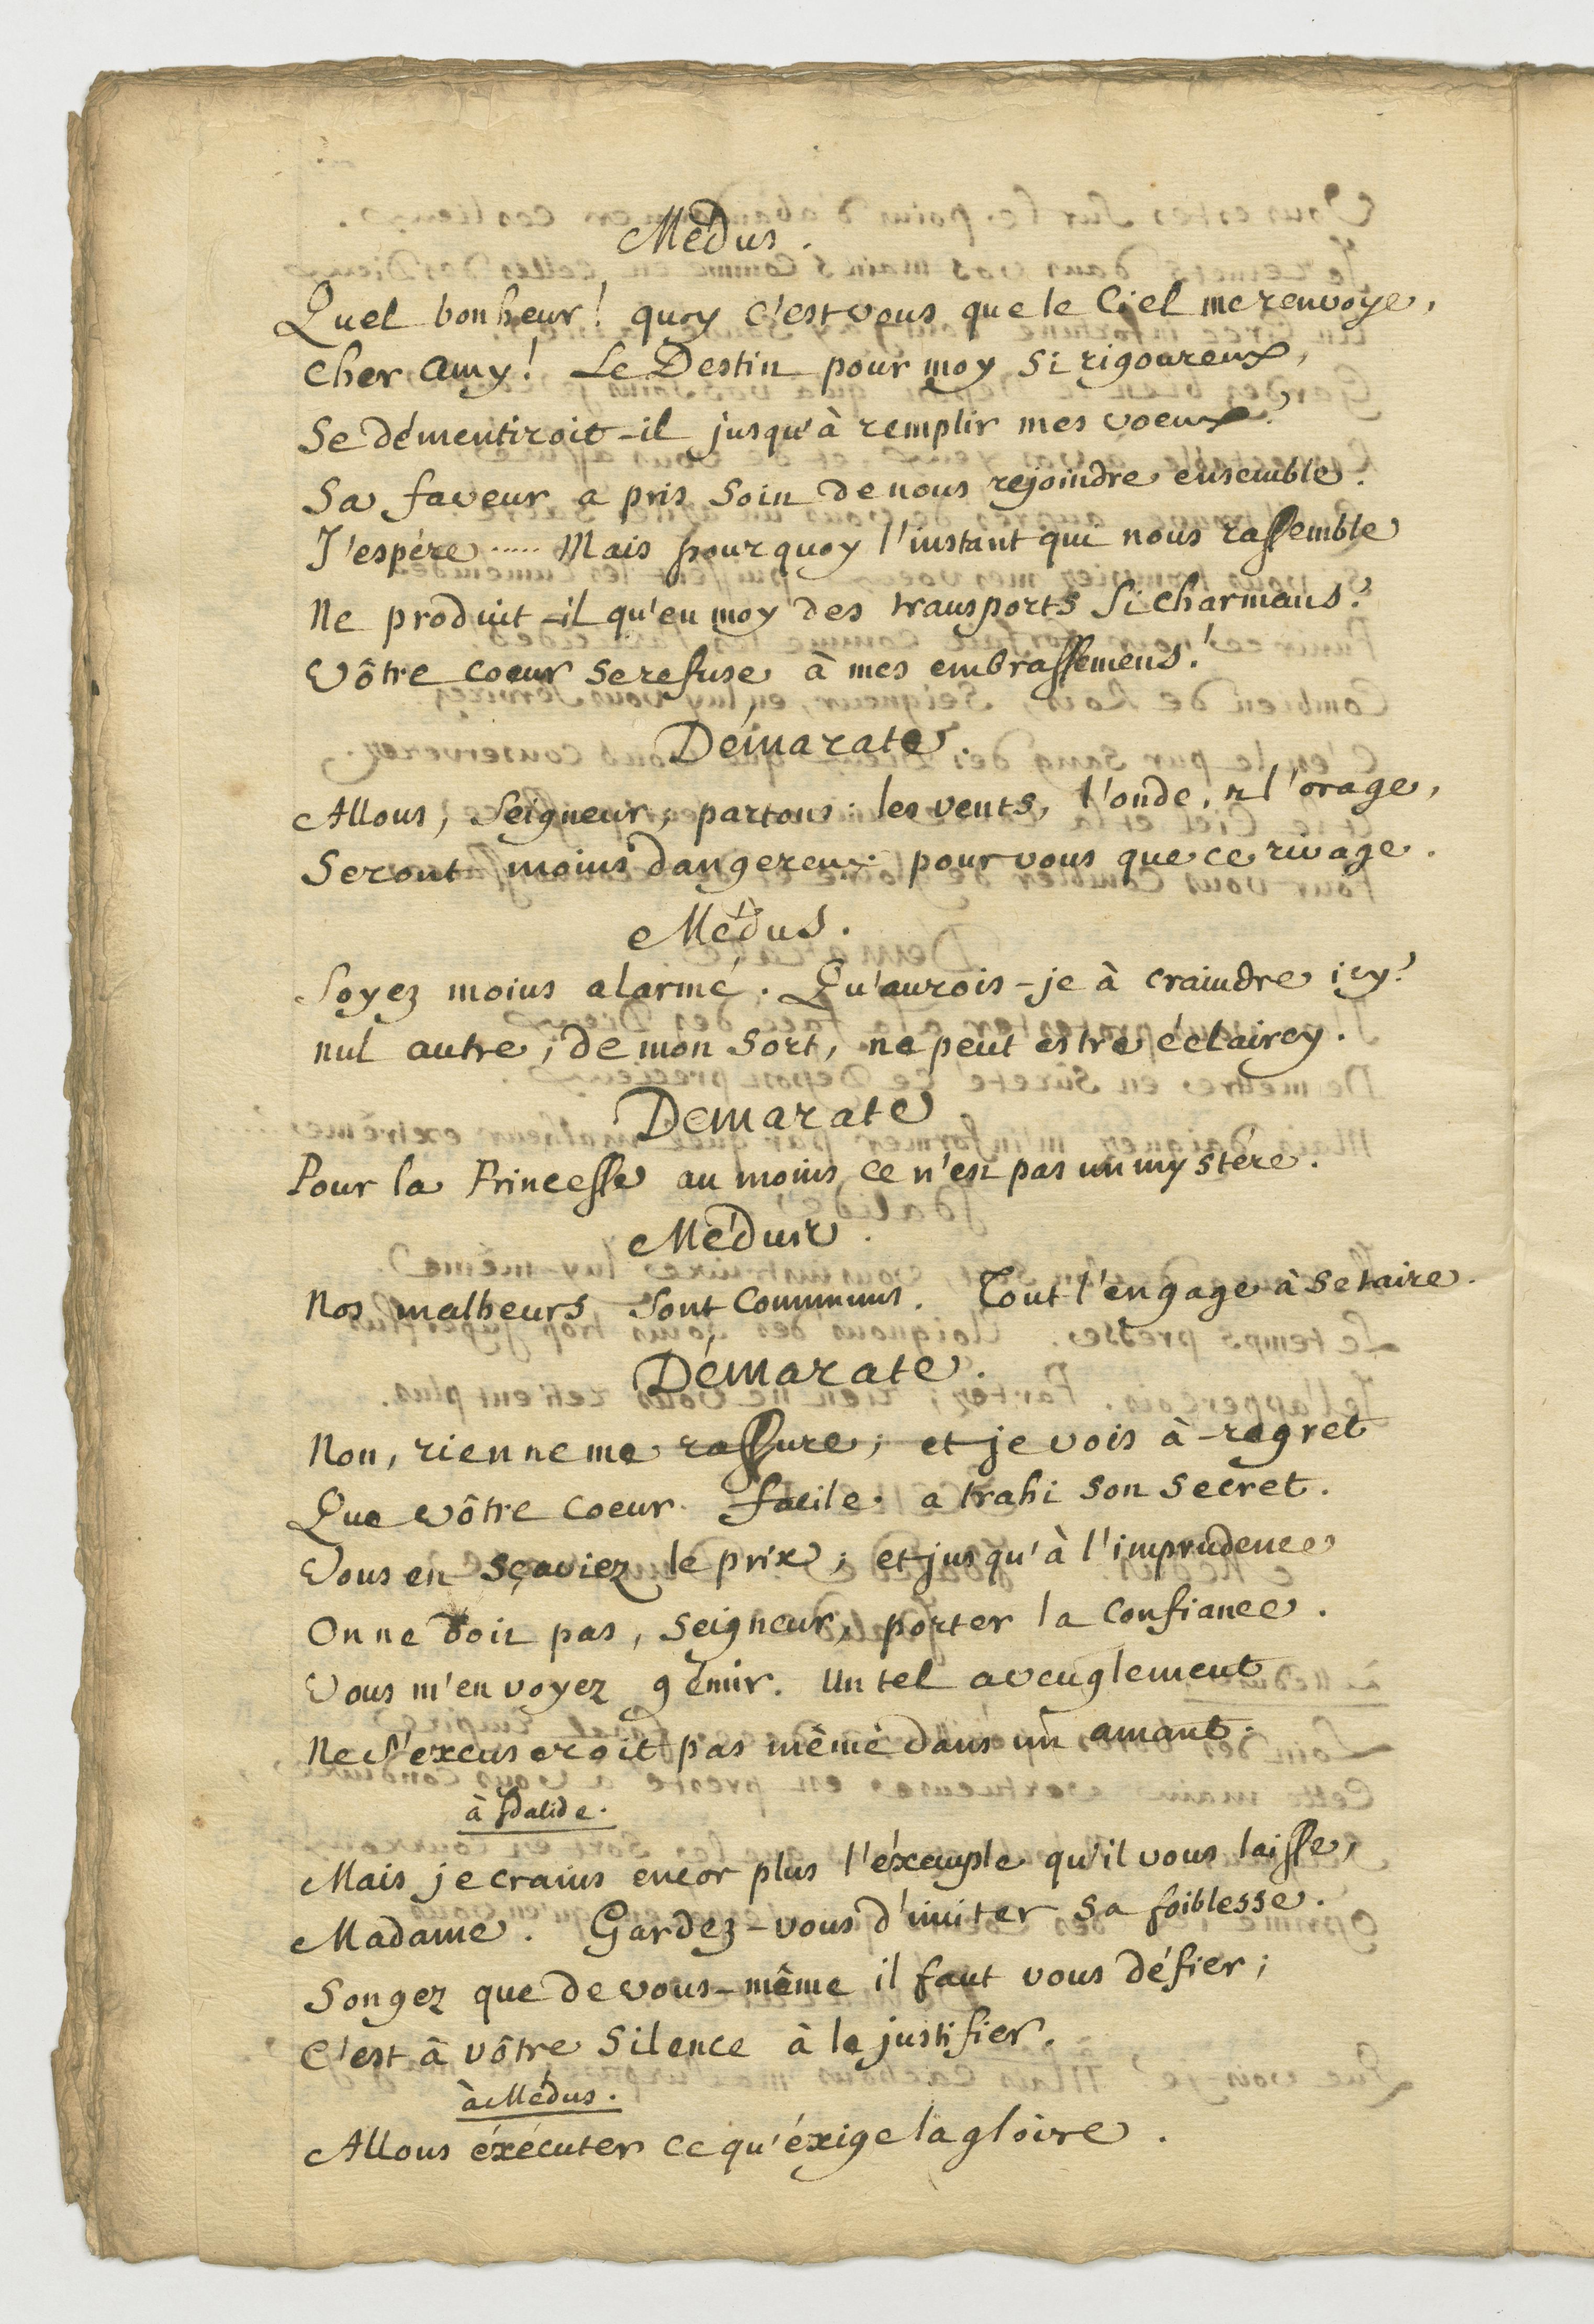 Médus.
Quel bonheur! quoy c'est vous que le Ciel me renvoye,
Cher amy! Le Destin pour moy si rigoureux,
Se démentiroit-il jusqu'à remplir mes voeux?
Sa faveur a pris soin de nous rejoindre ensemble.
J'espére..... Mais pourquoy l'instant qui nous rassemble
Ne produit-il qu'en moy des transports si charmans?
Vôtre coeur se refuse à mes embrassemens!
Démarate.
Allons, Seigneur, partons: les vents, l'onde, et l'orage,
Seront moins dangereux pour vous que ce rivage.
Médus.
Soyez moins alarmé. Qu'aurois-je à craindre icy?
nul autre, de mon sort, ne peut estre éclaircy.
Demarate
Pour la Princesse au moins ce n'est pas un mystére.
Médus.
Nos malheurs sont communs. Tout l'engage à se taire.
Démarate.
Non, rien ne me rassure; et je vois à regret
Que vôtre coeur facile a trahi son secret.
Vous en sçaviez le prix; et jusqu'à l'imprudence
On ne doit pas, Seigneur, porter la confiance.
Vous m'en voyez gémir. Un tel aveuglement
Ne s'excuseroit pas même dans un amant.
à Idalide.
Mais je crains encor plus l'éxemple qu'il vous laisse,
Madame. Gardez-vous d'imiter sa foiblesse.
Songez que de vous-même il faut vous défier;
C'est à vôtre silence à le justifier.
à Médus.
Allons éxécuter ce qu'éxige la gloire.